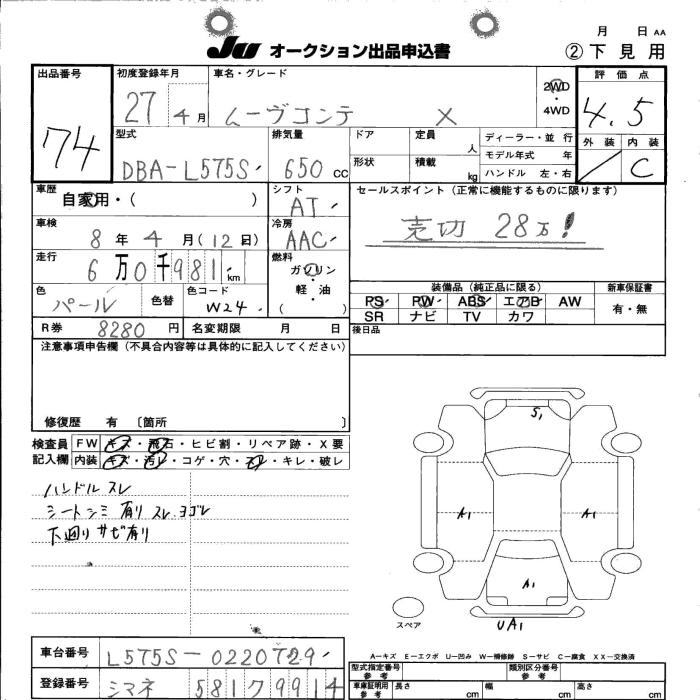 月 日 AA
JU オークション出品申込書 ②下見用
出品番号 初度登録年月 車名・グレード 2WD・4WD 評価点
74 27年4月 ムーヴコンテ X 4.5
型式 排気量 ドア 定員 人 ディーラー・並行 外装 内装
DBA-L575S 650cc 形状 積載 kg モデル年式 年 C
ハンドル 左・右
車歴 シフト セールスポイント(正常に機能するものに限ります)
自家用・( ) AT 売切 28万!
車検 冷房
8年4月(12日) AAC
走行 燃料
6万0千981km ガソリン・軽油 ( )
装備品(純正品に限る) 新車保証書
色 色替 色コード PS PW ABS エアB AW 有・無
パール W24 SR ナビ TV カワ
R券 8280円 名変期限 月 日 後日品
注意事項申告欄(不具合内容等は具体的に記入してください)
修復歴 有 〔箇所 〕
S1
検査員 FW キズ・飛石・ヒビ割・リペア跡・X要
記入欄 内装 キズ・汚レ・コゲ・穴・スレ・キレ・破レ
ハンドル スレ
シートシミ有り スレ.ヨゴレ
A1 A1
下廻りサビ有り
A1
スペア UA1
車台番号 L575S-0220729
A-キズ E-エクボ U-凹み W-補修跡 S-サビ C-腐食 XX-交換済
型式指定番号 参考 類別区分番号 参考
登録番号 シマネ 581ワ9914
車庫証明用 参考 長さ cm 幅 cm 高さ cm